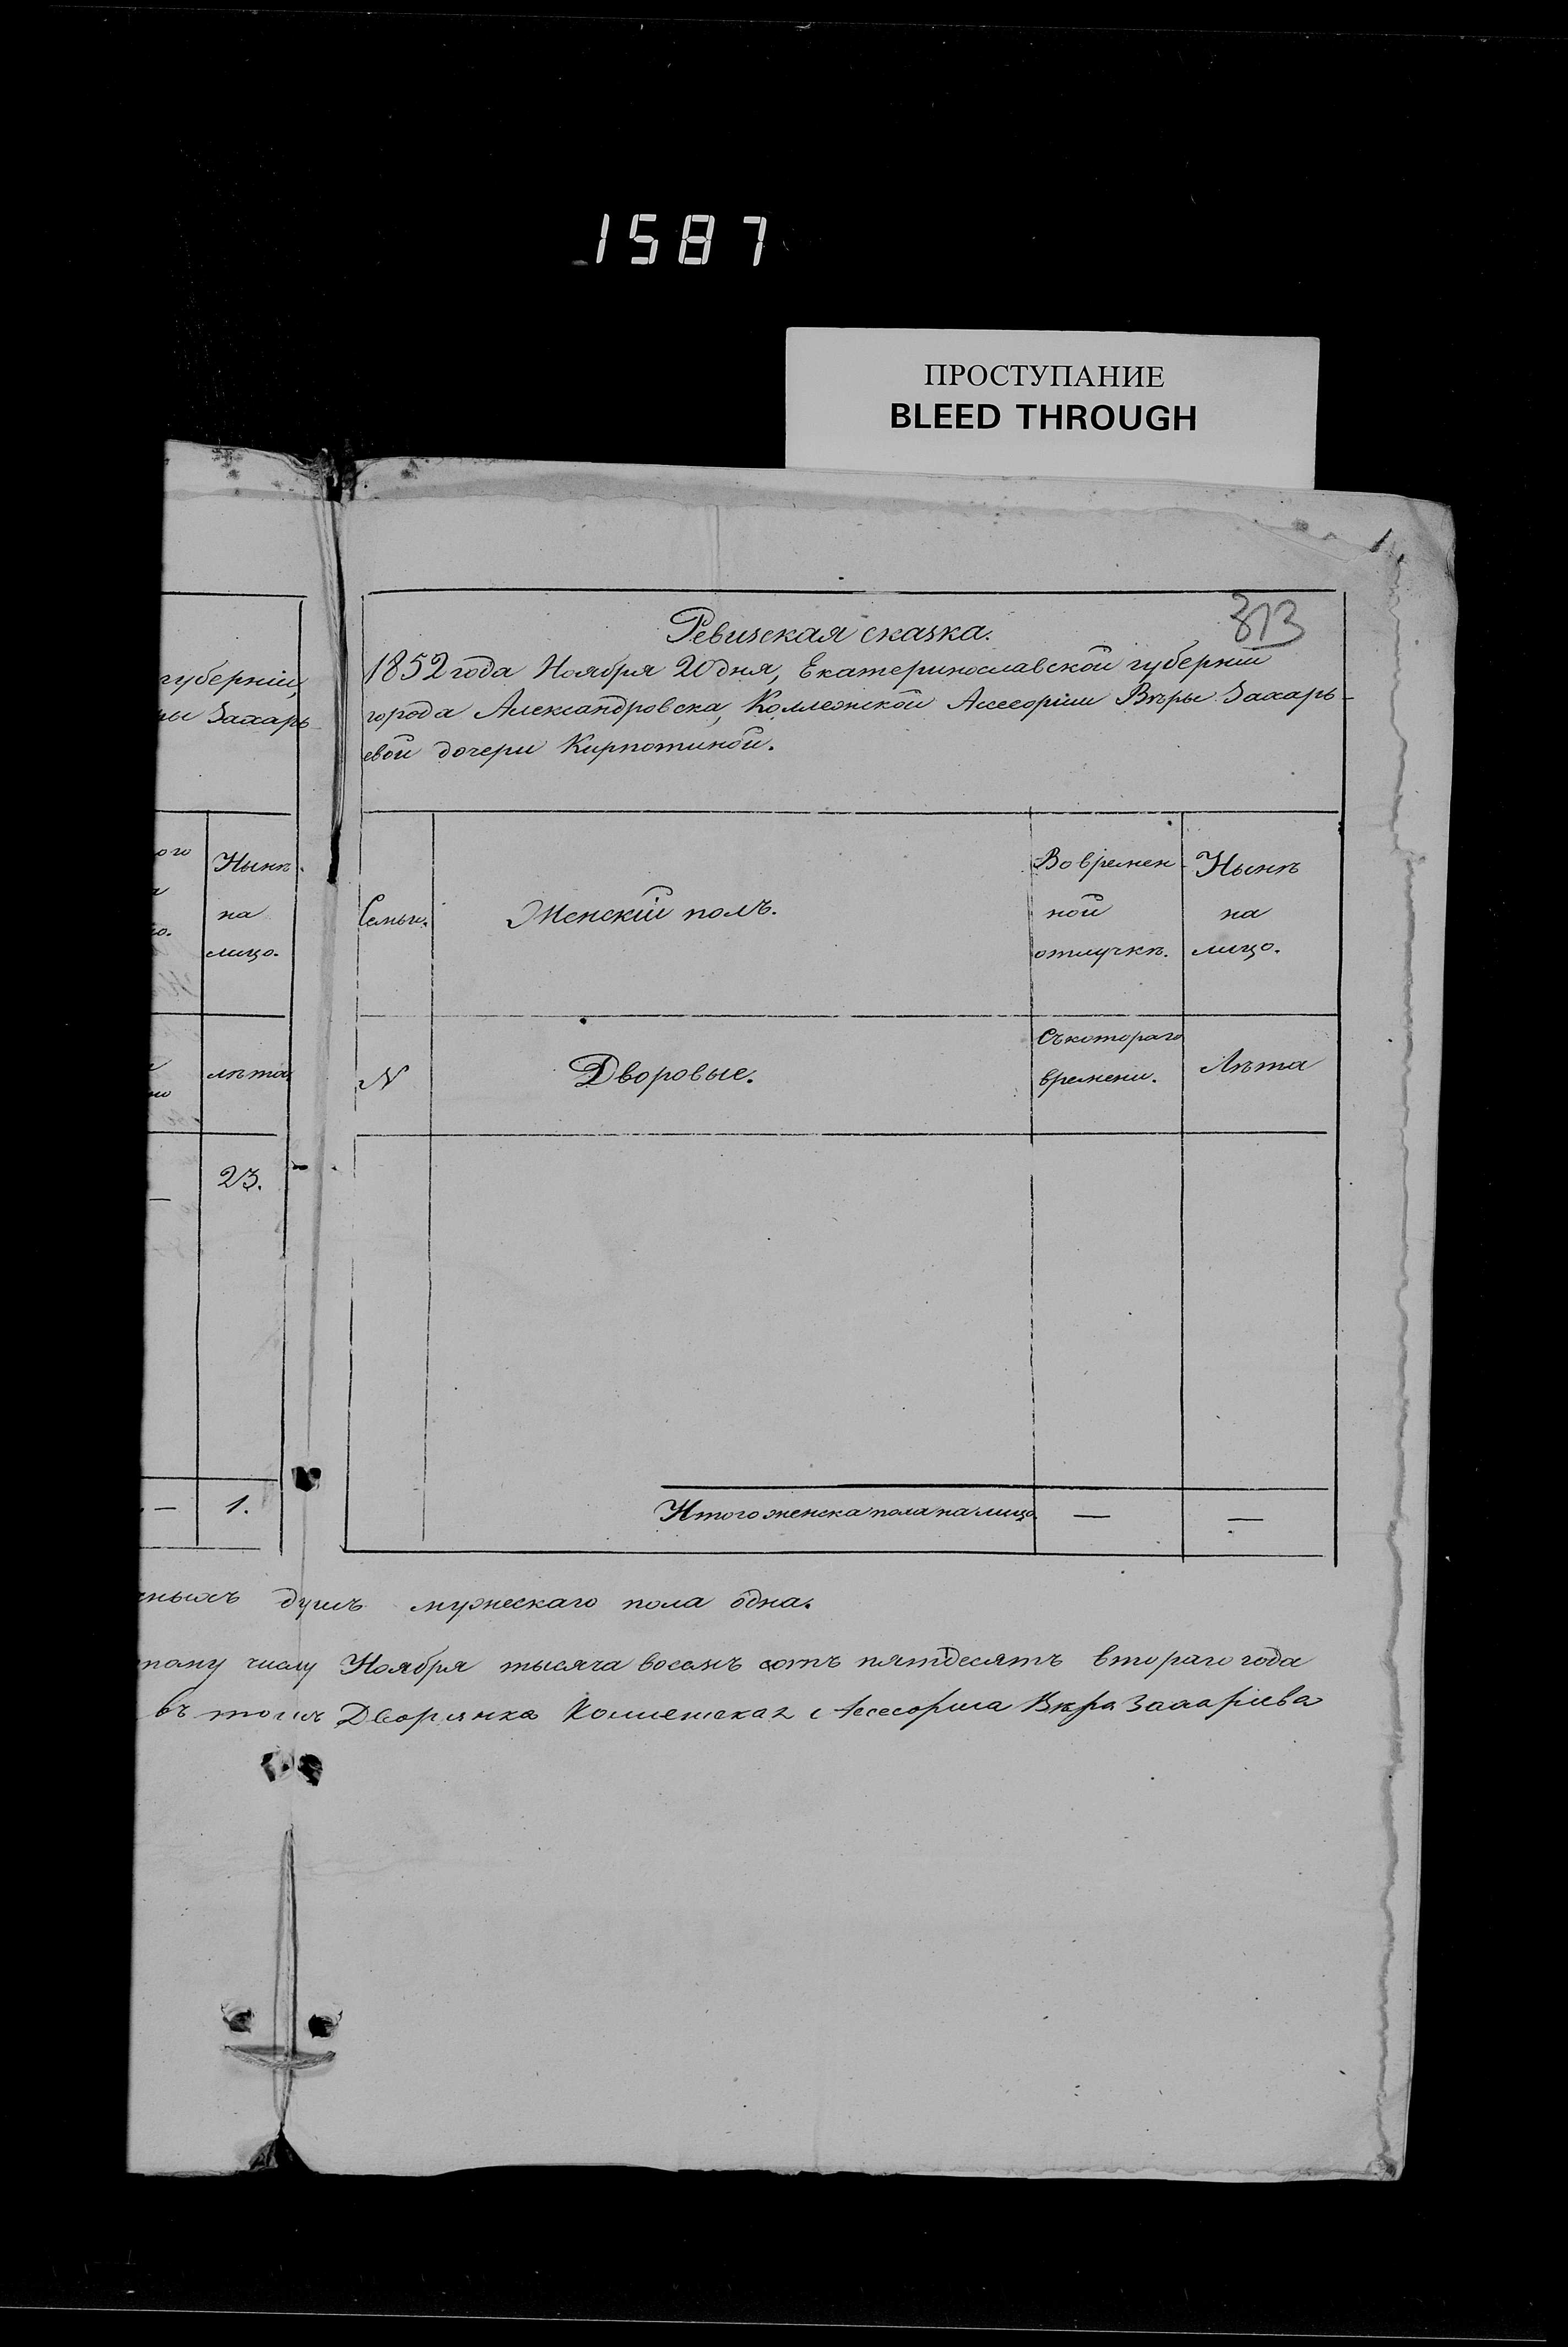 1587
ПРОСТУПАНИЕ
BLEED THROUGH
1
губерніи,
ры Захарь-
ого
Нынѣ
на
лицо.
лѣта
23.
— 1.
313
Ревизская сказка.
1852 года Ноября 20 дня, Екатеринославской губерніи
города Александровска, Коллежской Ассесорши Вѣры Захарь-
евой дочери Кирпотиной.
Семьи. Женскій полъ. Во времен- Нынѣ
ной на
отлучкѣ. лицо.
N Дворовые. Съ котораго Лѣта
времени.
Итого женска пола на лицо — —
душъ мужескаго пола одна.
числу Ноября тысяча восемъ сотъ пятдесятъ втораго года
въ томъ Дворянка Коллежская Ассесорша Вѣра Захаріева